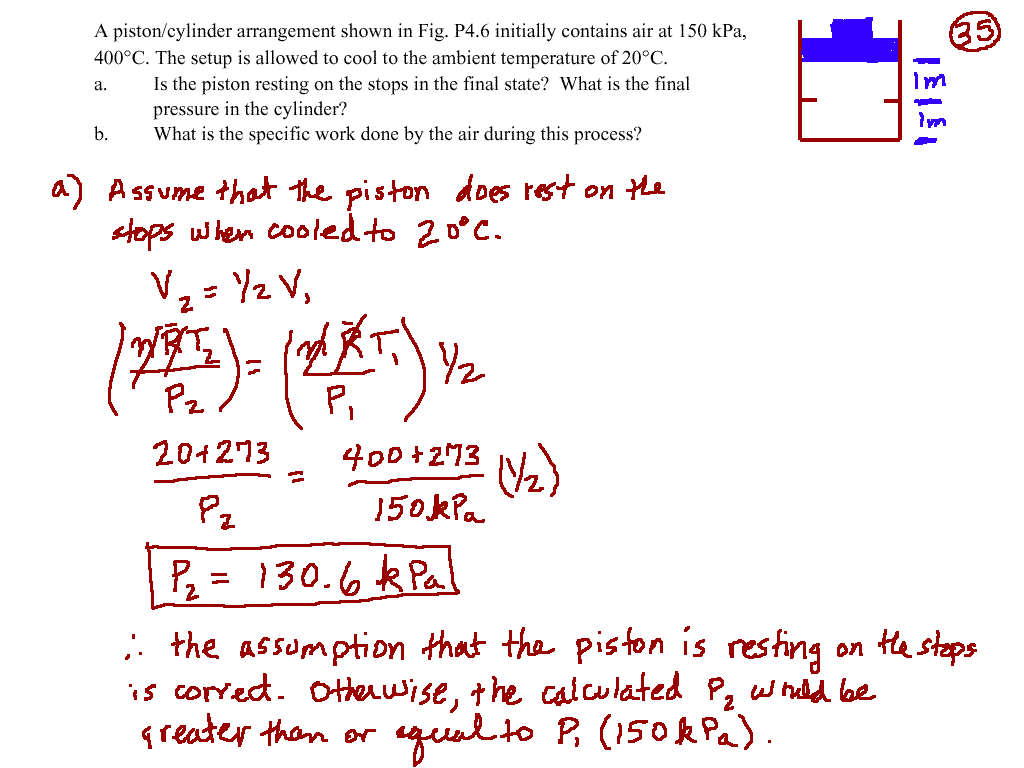 A piston/cylinder arrangement shown in Fig. P4.6 initially contains air at 150 kPa,
400°C. The setup is allowed to cool to the ambient temperature of 20°C.
a. Is the piston resting on the stops in the final state? What is the final
pressure in the cylinder?
b. What is the specific work done by the air during this process?
35
1m
1m
a) Assume that the piston does rest on the
stops when cooled to 20°C.
V₂ = 1/2 V₁
(n R̄ T₂ / P₂) = (n R̄ T₁ / P₁) 1/2
20+273 / P₂ = 400+273 / 150 kPa (1/2)
P₂ = 130.6 kPa
∴ the assumption that the piston is resting on the stops
is correct. Otherwise, the calculated P₂ would be
greater than or equal to P₁ (150 kPa).